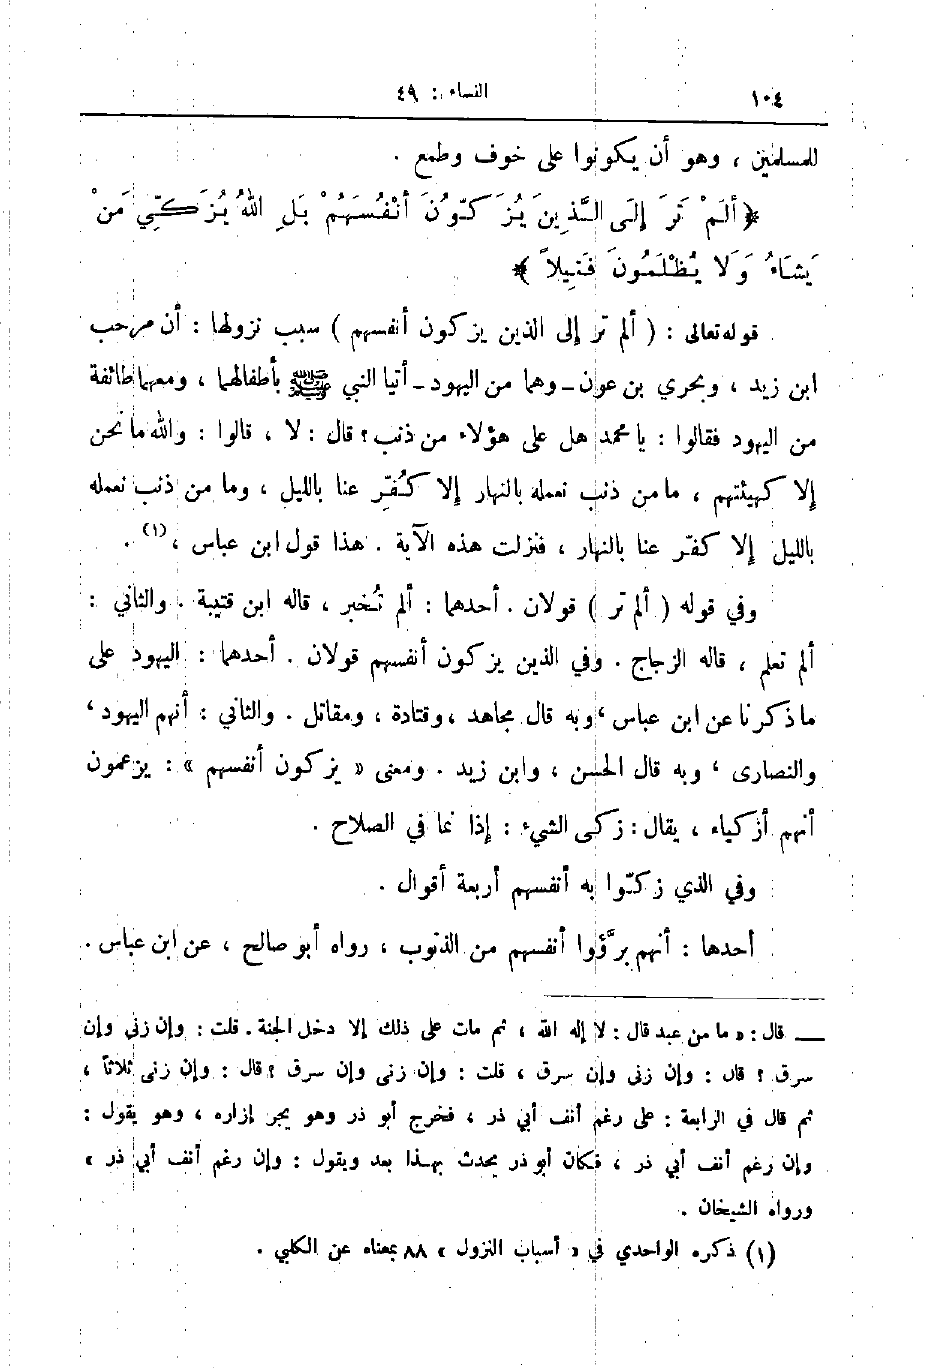 ١٠٤
النساء : ٤٩
للمسلمين ، وهو أن يكونوا على خوف وطمع .
﴿ أَلَمْ تَرَ إِلَى الَّذِينَ يُزَكُّونَ أَنْفُسَهُمْ بَلِ اللهُ يُزَكِّي مَنْ
يَشَاءُ وَلَا يُظْلَمُونَ فَتِيلاً ﴾
قوله تعالى : ( ألم تر إلى الذين يزكون أنفسهم ) سبب نزولها : أن مرحب
ابن زيد ، وبحري بن عون ـ وهما من اليهود ـ أتيا النبي ﷺ بأطفالهما ، ومعهما طائفة
من اليهود فقالوا : يا محمد هل على هؤلاء من ذنب ؟ قال : لا ، قالوا : والله ما نحن
إلا كهيئتهم ، ما من ذنب نعمله بالنهار إلا كُفِّر عنا بالليل ، وما من ذنب نعمله
بالليل إلا كفّر عنا بالنهار ، فنزلت هذه الآية . هذا قول ابن عباس ، (١) .
وفي قوله ( ألم تر ) قولان . أحدهما : ألم تُخبر ، قاله ابن قتيبة . والثاني :
ألم تعلم ، قاله الزجاج . وفي الذين يزكون أنفسهم قولان . أحدهما : اليهود على
ما ذكرنا عن ابن عباس ، وبه قال مجاهد ، وقتادة ، ومقاتل . والثاني : أنهم اليهود ،
والنصارى ، وبه قال الحسن ، وابن زيد . ومعنى « يزكون أنفسهم » : يزعمون
أنهم أزكياء ، يقال : زكى الشيء : إذا نما في الصلاح .
وفي الذي زكّوا به أنفسهم أربعة أقوال .
أحدها : أنهم برَّؤوا أنفسهم من الذنوب ، رواه أبو صالح ، عن ابن عباس .
ــ قال : « ما من عبد قال : لا إله الله ، ثم مات على ذلك إلا دخل الجنة . قلت : وإن زنى وإن
سرق ؟ قال : وإن زنى وإن سرق ، قلت : وإن زنى وإن سرق ؟ قال : وإن زنى ثلاثاً ،
ثم قال في الرابعة : على رغم أنف أبي ذر ، فخرج أبو ذر وهو يجر إزاره ، وهو يقول :
وإن رغم أنف أبي ذر ، فكان أبو ذر يحدث بهذا بعد ويقول : وإن رغم أنف أبي ذر »
ورواه الشيخان .
(١) ذكره الواحدي في « أسباب النزول » ٨٨ بمعناه عن الكلبي .